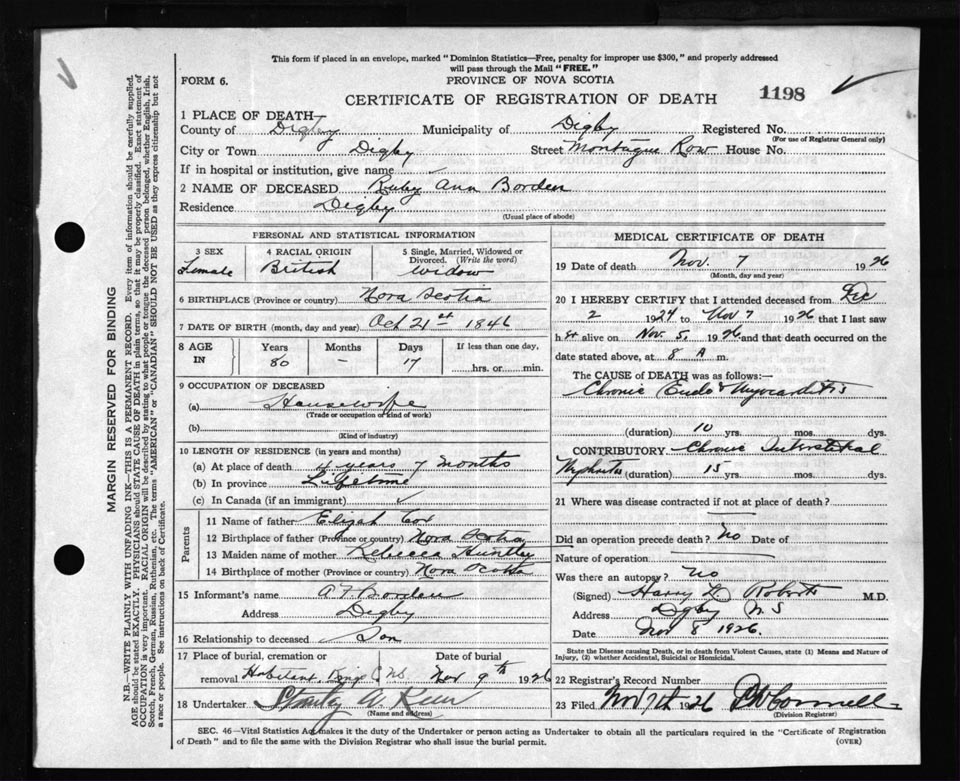 This form if placed in an envelope, marked "Dominion Statistics—Free, penalty for improper use $300," and properly addressed
will pass through the Mail "FREE."
FORM 6.
PROVINCE OF NOVA SCOTIA
CERTIFICATE OF REGISTRATION OF DEATH
1198
1 PLACE OF DEATH
County of Digby Municipality of Digby Registered No.
(For use of Registrar General only)
City or Town Digby Street Montague Row House No.
If in hospital or institution, give name
2 NAME OF DECEASED Ruby Ann Borden
Residence Digby
(Usual place of abode)
PERSONAL AND STATISTICAL INFORMATION
3 SEX Female
4 RACIAL ORIGIN British
5 Single, Married, Widowed or Divorced. (Write the word) widow
6 BIRTHPLACE (Province or country) Nova Scotia
7 DATE OF BIRTH (month, day and year) Oct 21st 1846
8 AGE IN Years 80 Months – Days 17 If less than one day, hrs. or min.
9 OCCUPATION OF DECEASED
(a) Housewife
(Trade or occupation or kind of work)
(b)
(Kind of industry)
10 LENGTH OF RESIDENCE (in years and months)
(a) At place of death 4 years 7 months
(b) In province Lifetime
(c) In Canada (if an immigrant)
Parents
11 Name of father Elijah Cox
12 Birthplace of father (Province or country) Nova Scotia
13 Maiden name of mother Rebecca Huntley
14 Birthplace of mother (Province or country) Nova Scotia
15 Informant's name A F. Borden
Address Digby
16 Relationship to deceased Son
17 Place of burial, cremation or removal Habitant Kings C NS Date of burial Nov 9th 1926
18 Undertaker Stanley W.
(Name and address)
MEDICAL CERTIFICATE OF DEATH
19 Date of death Nov. 7 1926
(Month, day and year)
20 I HEREBY CERTIFY that I attended deceased from Dec
2 1924 to Nov 7 1926 that I last saw
her alive on Nov. 5, 1926 and that death occurred on the
date stated above, at 8 A m.
The CAUSE of DEATH was as follows:—
Chronic Endo & Myocarditis
(duration) 10 yrs. mos. dys.
CONTRIBUTORY Chronic Interstitial
Nephritis (duration) 15 yrs. mos. dys.
21 Where was disease contracted if not at place of death?
Did an operation precede death? No Date of
Nature of operation
Was there an autopsy? no
(Signed) Harry L Roberts M.D.
Address Digby NS
Date Nov 8 1926.
State the Disease causing Death, or in death from Violent Causes, state (1) Means and Nature of
Injury, (2) whether Accidental, Suicidal or Homicidal.
22 Registrar's Record Number
23 Filed Nov 7th 1926
(Division Registrar)
SEC. 46—Vital Statistics Act makes it the duty of the Undertaker or person acting as Undertaker to obtain all the particulars required in the "Certificate of Registration
of Death" and to file the same with the Division Registrar who shall issue the burial permit.
(OVER)
MARGIN RESERVED FOR BINDING
N.B.—WRITE PLAINLY WITH UNFADING INK—THIS IS A PERMANENT RECORD. Every item of information should be carefully supplied.
AGE should be stated EXACTLY. PHYSICIANS should STATE CAUSE OF DEATH in plain terms, so that it may be properly classified. Exact statement of
OCCUPATION is very important. RACIAL ORIGIN will be described by stating to what people or tongue the deceased person belonged, whether English, Irish,
Scotch, French, German, Russian, Ruthenian, etc. The terms "AMERICAN" or "CANADIAN" SHOULD NOT BE USED as they express citizenship but not
a race or people. See instructions on back of Certificate.